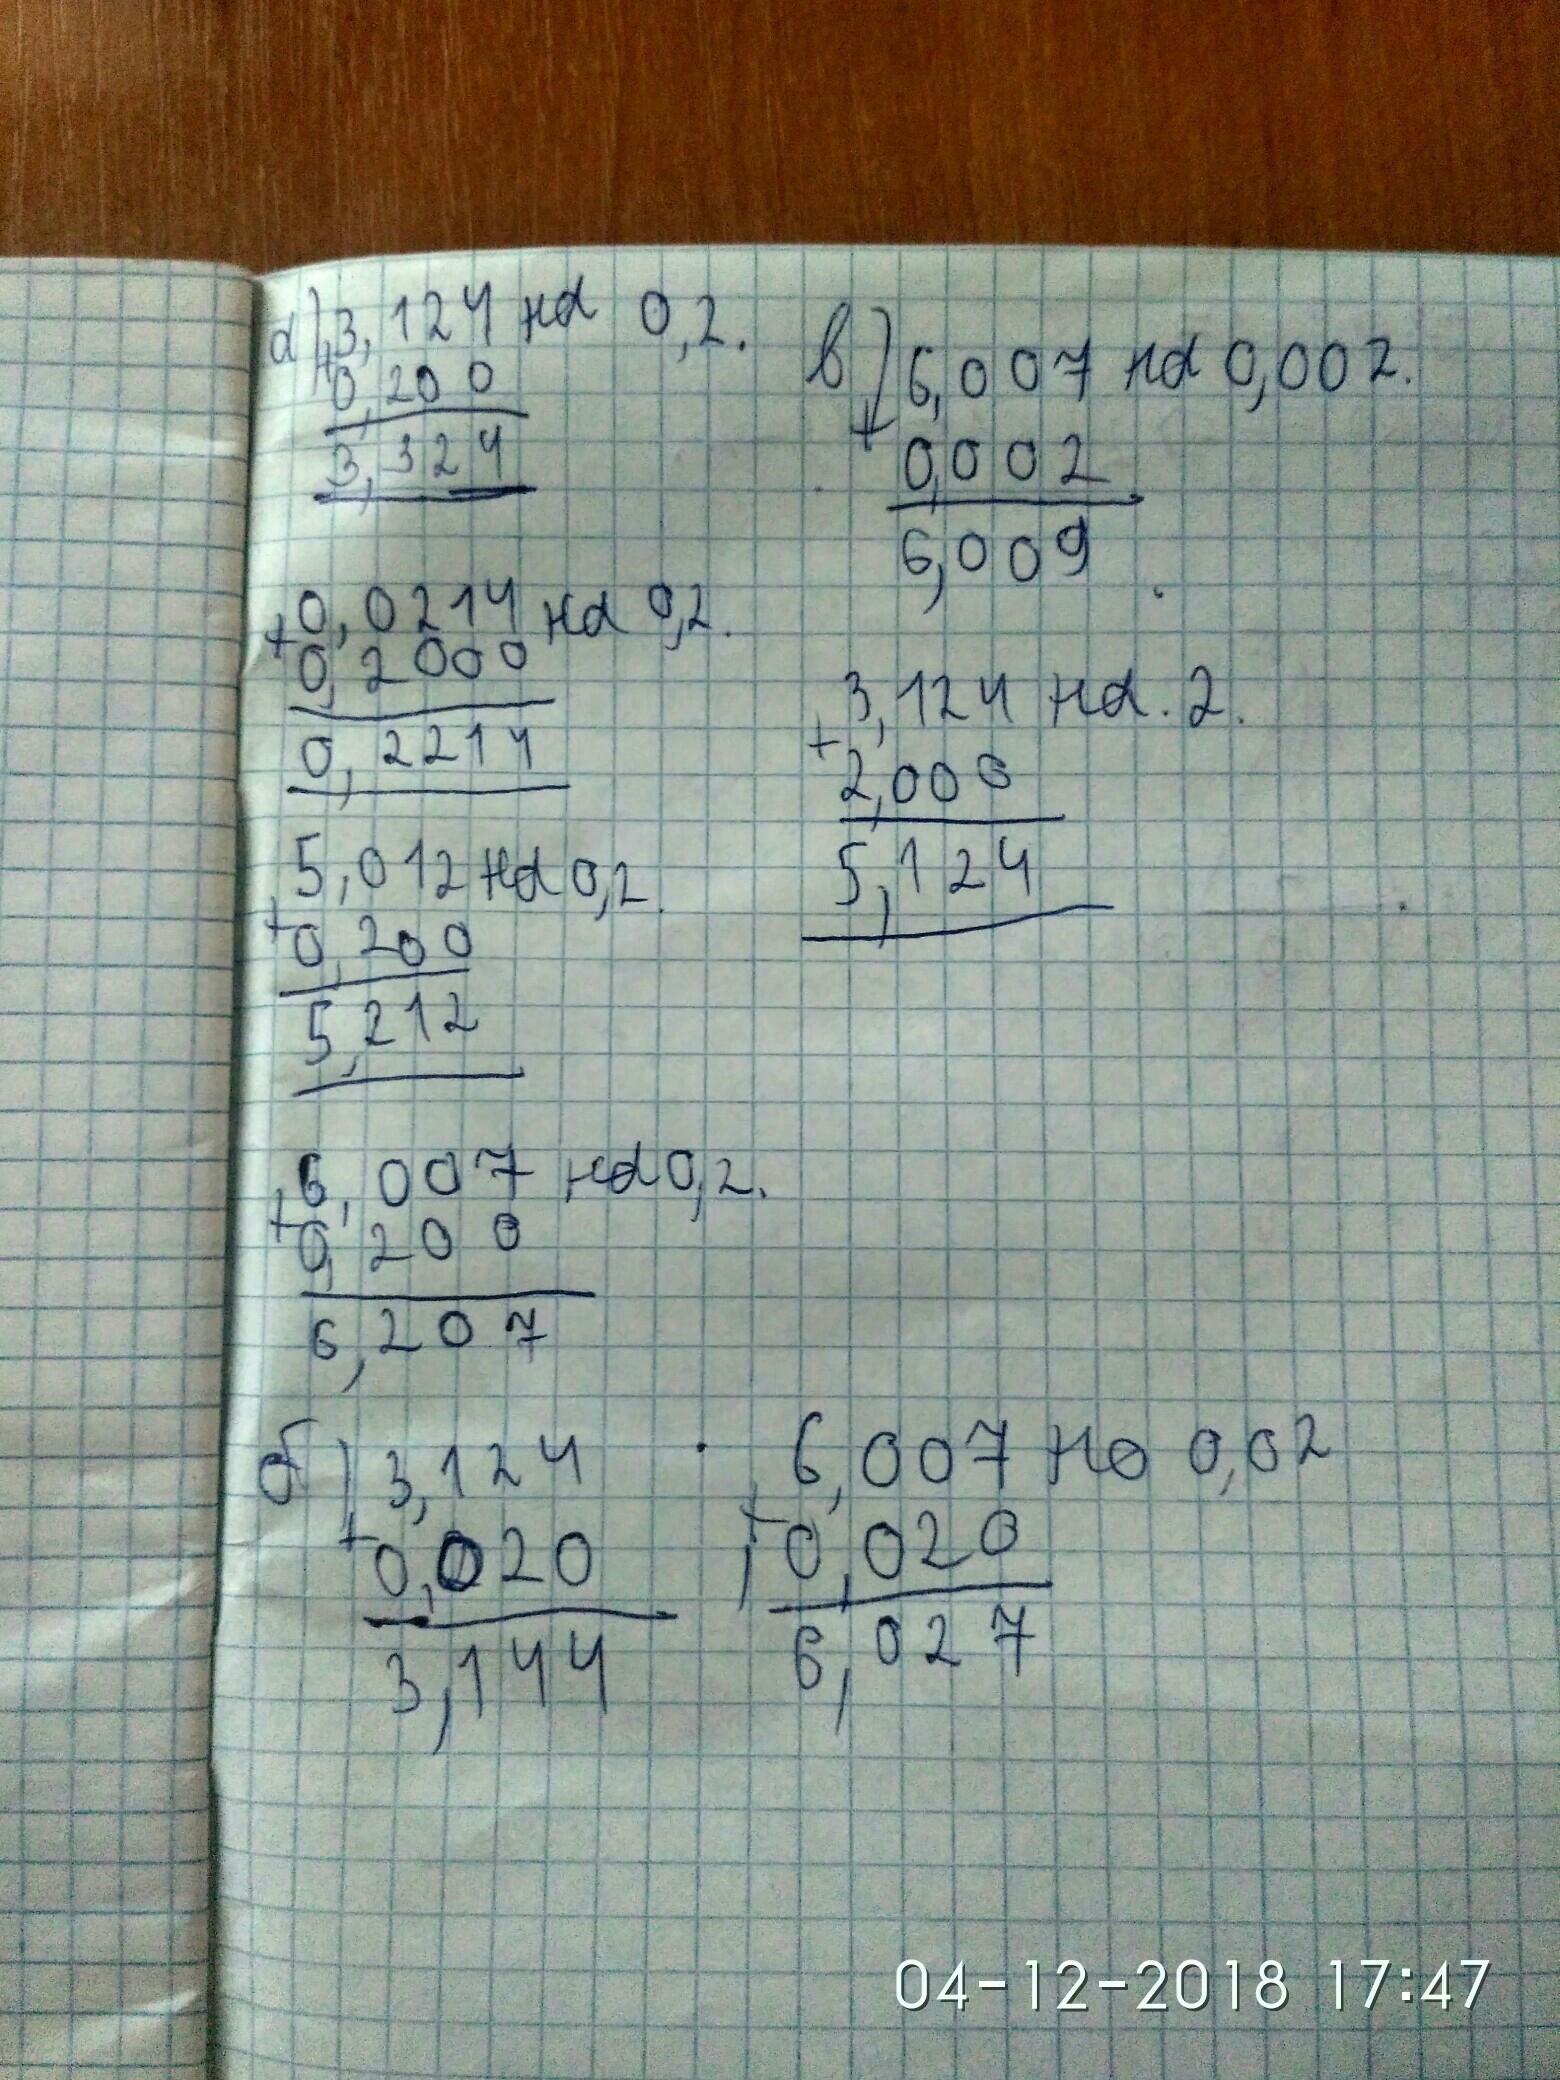 а) 3,124 на 0,2.
+ 0,200
3,324
0,0214 на 0,2.
+ 0,2000
0,2214
5,012 на 0,2.
+ 0,200
5,212
6,007 на 0,2.
+ 0,200
6,207
б) 3,124
+ 0,020
3,144
6,007 на 0,02
+ 0,020
6,027
в) 6,007 на 0,002.
+ 0,002
6,009
3,124 на 2.
+ 2,000
5,124
04-12-2018 17:47